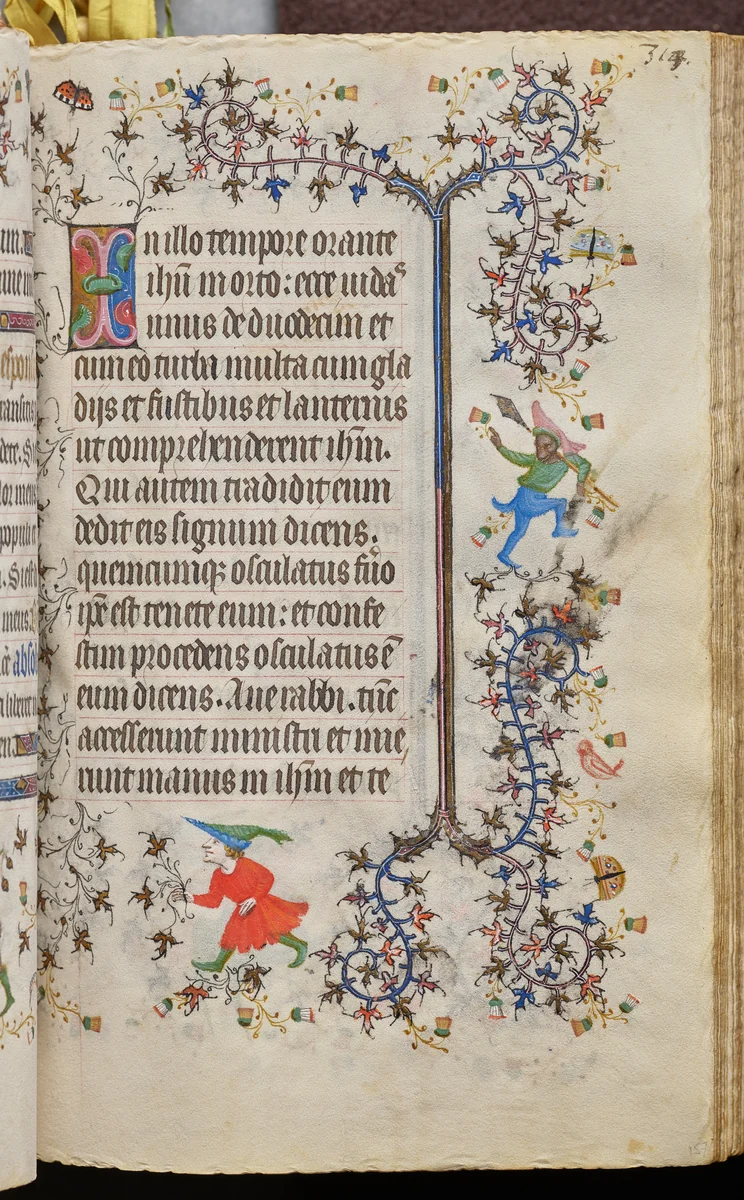 314.
In illo tempore orante
ihū in orto : ecce iudas
unus de duodecim et
cum eo turba multa cum gla
dijs et fustibus et lanternis
ut comprehenderent ihm̄.
Qui autem tradidit eum
dedit eis signum dicens.
quemcumq; osculatus fuo
ip̄e est tenete eum : et confe
stim procedens osculatus ē
eum dicens. Aue rabbi. tūc
accesserunt ministri et mie
runt manus in ihm̄ et te
157